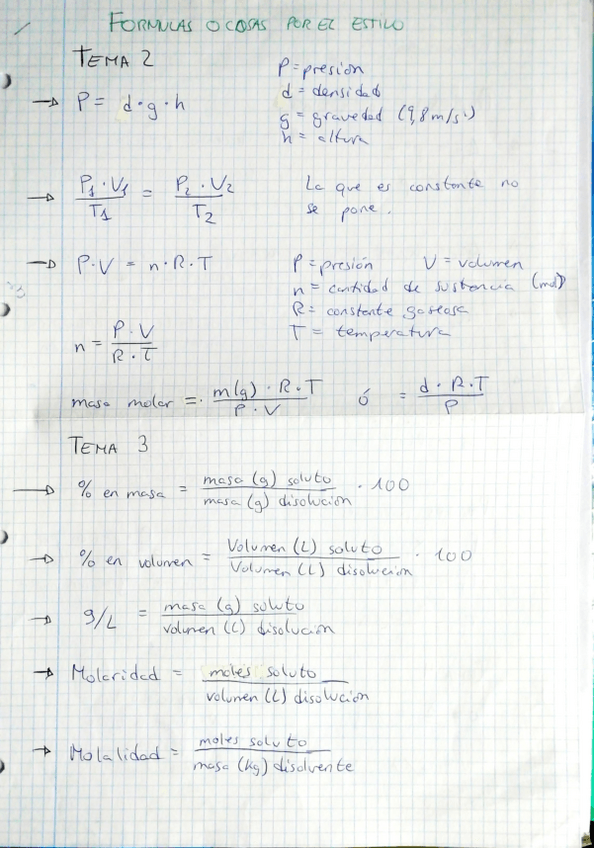 FORMULAS O COSAS POR EL ESTILO
TEMA 2
→ P = d·g·h
P = presión
d = densidad
g = gravedad (9,8 m/s²)
h = altura
→ P₁·V₁ / T₁ = P₂·V₂ / T₂
Lo que es constante no
se pone.
→ P·V = n·R·T
P = presión V = volumen
n = cantidad de sustancia (mol)
R = constante gaseosa
T = temperatura
n = P·V / R·T
masa molar = m(g)·R·T / P·V ó = d·R·T / P
TEMA 3
→ % en masa = masa (g) soluto / masa (g) disolución · 100
→ % en volumen = Volumen (L) soluto / Volumen (L) disolución · 100
→ g/L = masa (g) soluto / volumen (L) disolución
→ Molaridad = moles soluto / volumen (L) disolución
→ Molalidad = moles soluto / masa (kg) disolvente